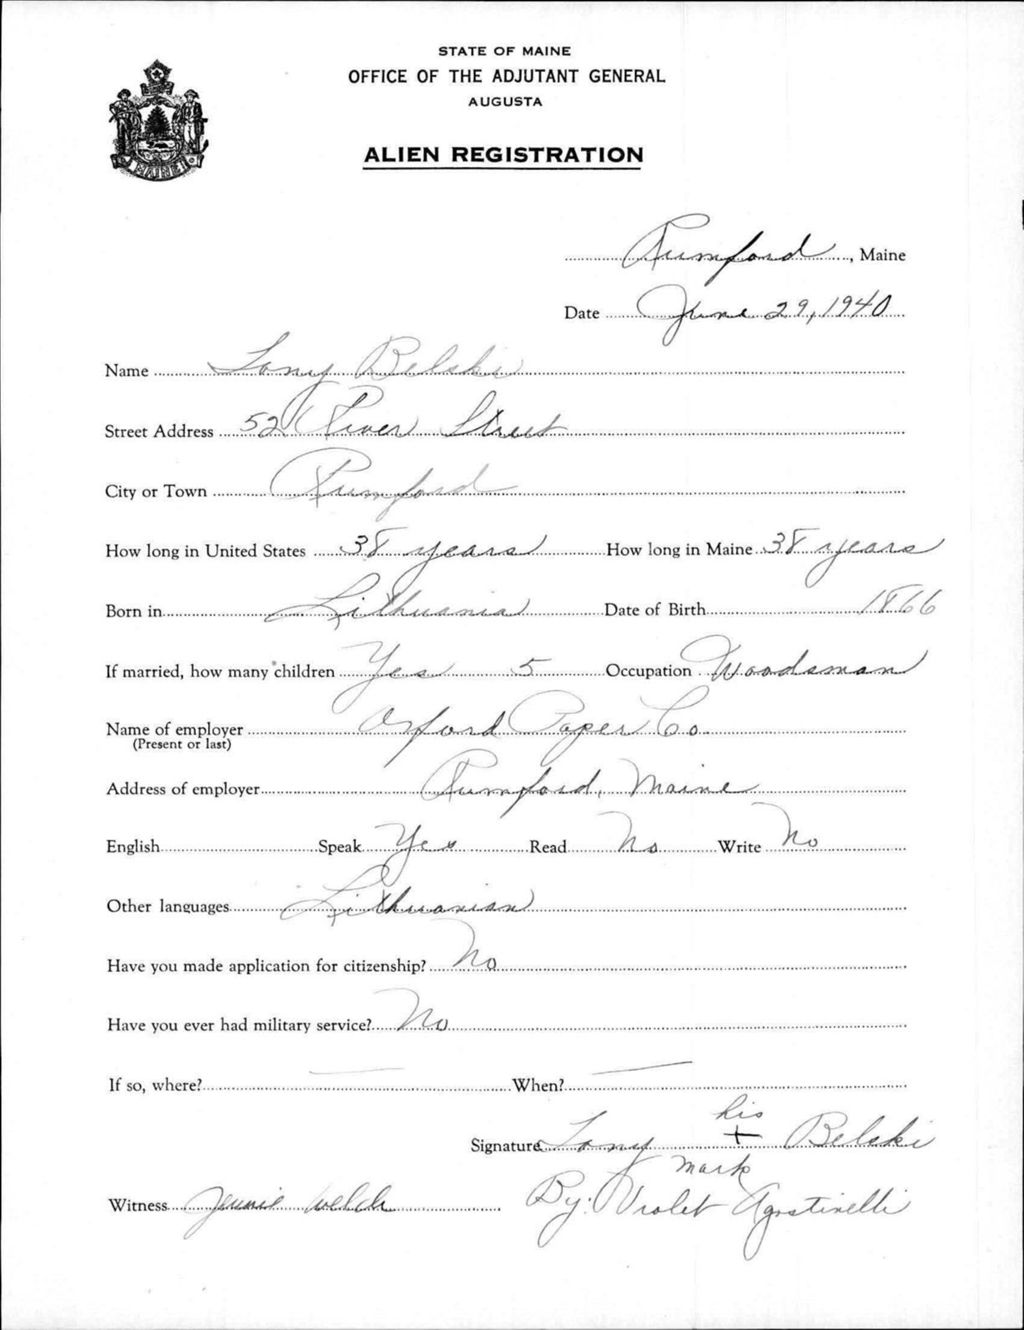 STATE OF MAINE
OFFICE OF THE ADJUTANT GENERAL
AUGUSTA
ALIEN REGISTRATION
MAINE
Rumford, Maine
Date June 29, 1940
Name Tony Belski
Street Address 52 River Street
City or Town Rumford
How long in United States 38 years How long in Maine 38 years
Born in Lithuania Date of Birth 1866
If married, how many children Yes 5 Occupation Woodsman
Name of employer Oxford Paper Co.
(Present or last)
Address of employer Rumford, Maine
English Speak Yes Read No Write No
Other languages Lithuanian
Have you made application for citizenship? No
Have you ever had military service? No
If so, where? — When? —
his
Signature Tony + Belski
mark
Witness Jennie Welch By: Violet Agostinelli